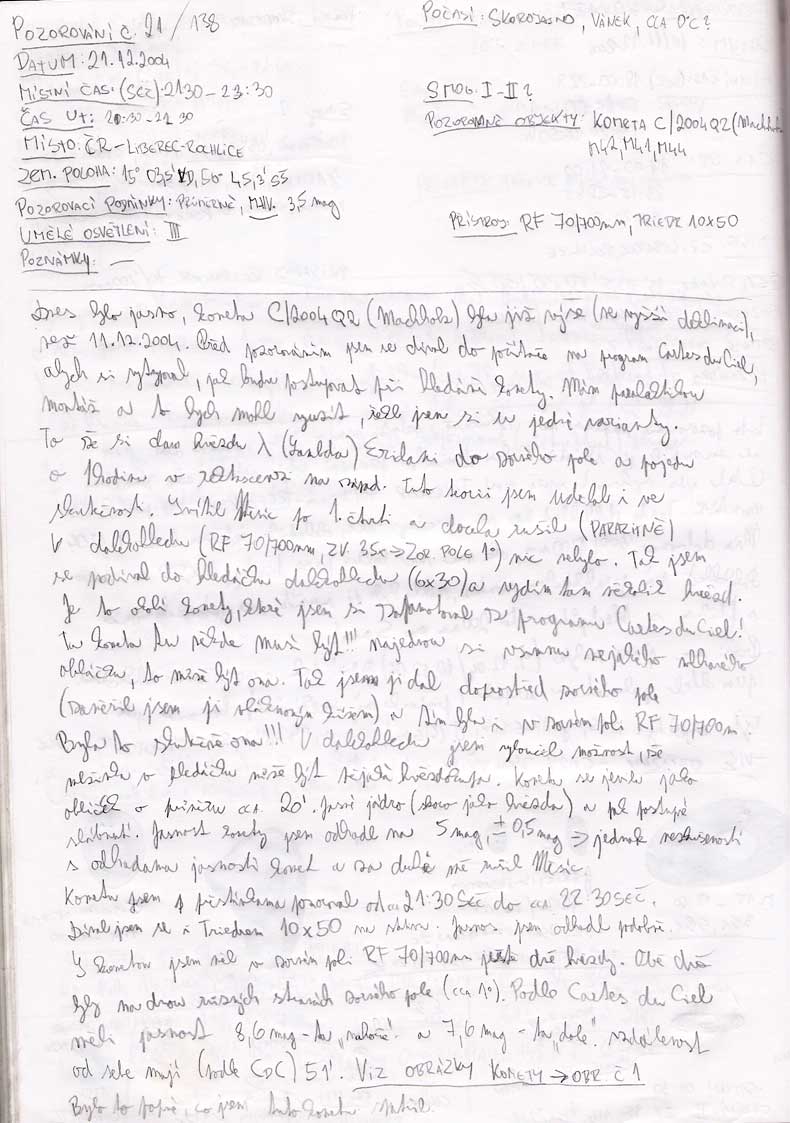 POZOROVÁNÍ Č. 21/138
DATUM: 21.12.2004
MÍSTNÍ ČAS: (SEČ): 21:30 – 23:30
ČAS UT: 20:30 – 21 30
MÍSTO: ČR – LIBEREC – ROCHLICE
ZEM. POLOHA: 15° 03,5' VD, 50° 45,3' SŠ
POZOROVACÍ PODMÍNKY: PRŮMĚRNÉ, MHV. 3,5 mag
UMĚLÉ OSVĚTLENÍ: III
POZNÁMKY: —
POČASÍ: SKOROJASNO, VÁNEK, CCA 0°C?
SMOG: I–II?
POZOROVANÉ OBJEKTY: KOMETA C/2004 Q2 (Machholz
M42, M41, M44
PŘÍSTROJ: RF 70/700mm, TRIEDR 10x50
Dnes bylo jasno, kometa C/2004 Q2 (Machholz) byla již výše (ve vyšší deklinaci),
než 11.12.2004. Před pozorováním jsem se díval do počítače na program Cartes du Ciel,
abych si vytypoval, jak budu postupovat při hledání komety. Mám paralaktickou
montáž a to bych mohl využít, řekl jsem si u jedné varianty.
To že si dám hvězdu λ (Lambda) Eridani do zorného pole a pojedu
o 1 hodinu v rektascenzi na západ. Tuto teorii jsem udělal i ve
skutečnosti. Svítil Měsíc po 1. čtvrti a docela rušil (PARAZITNĚ)
V dalekohledu (RF 70/700mm, ZV. 35x => ZOR. POLE 1°) nic nebylo. Tak jsem
se podíval do hledáčku dalekohledu (6x30) a vidím tam několik hvězd.
Je to okolí komety, které jsem si zapamatoval z programu Cartes du Ciel!
Ta kometa tu někde musí být!!! najednou si všimnu nějakého mlhavého
obláčku, to může být ona. Tak jsem ji dal doprostřed zorného pole
(zaměřil jsem ji vláknovým křížem) a tím byla i v zorném poli RF 70/700mm.
Byla to skutečně ona!!! V dalekohledu jsem vyloučil možnost, že
v hledáčku může být nějaká hvězdokupa. Kometa se jevila jako
obláček o průměru cca. 20'. Jasné jádro (skoro jako hvězda) a pak postupné
slábnutí. Jasnost komety jsem odhadl na 5 mag, ± 0,5 mag => jednak nezkušenosti
s odhadama jasnosti komet a za druhé mě rušil Měsíc.
Kometu jsem s přestávkama pozoroval od cca 21:30 SEČ do cca 22:30 SEČ.
Díval jsem se i Triedrem 10x50 na kometu. Jasnost jsem odhadl podobně.
S kometou jsem měl v zorném poli RF 70/700mm ještě dvě hvězdy. Obě dvě
byly na dvou různých stranách zorného pole (cca 1°). Podle Cartes du Ciel
měli jasnost 8,6 mag – ta „nahoře“ a 7,6 mag – ta „dole“. vzdálenost
od sebe mají (podle CDC) 51'. VIZ OBRÁZKY KOMETY → OBR. Č 1
Bylo to poprvé, co jsem tuto kometu spatřil.